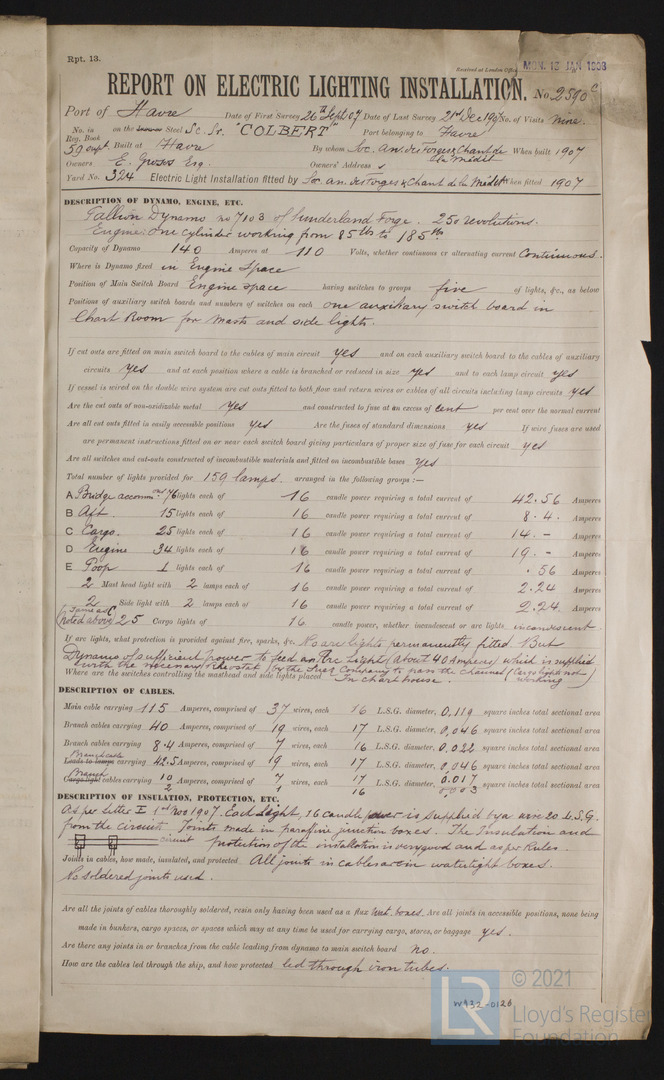 Rpt. 13.
Received at London Office MON. 13 JAN 1908
REPORT ON ELECTRIC LIGHTING INSTALLATION. No 2590c
Port of Havre Date of First Survey 26th Sept 07 Date of Last Survey 21st Dec 1907 No. of Visits nine.
No. in Reg. Book 59 supt. on the Steel Sc. Sr. "COLBERT" Port belonging to Havre
Built at Havre By whom Soc. An. des Forges & Chant. de la Médit When built 1907
Owners E. Grosos Esq. Owners' Address
Yard No. 324 Electric Light Installation fitted by Soc. an. des Forges & Chant de la Médit When fitted 1907
DESCRIPTION OF DYNAMO, ENGINE, ETC.
Dynamo no 7103 of Sunderland Forge. 250 revolutions.
Engine: One cylinder working from 85 lbs to 185 lbs
Capacity of Dynamo 140 Amperes at 110 Volts, whether continuous or alternating current Continuous.
Where is Dynamo fixed in Engine Space
Position of Main Switch Board Engine space having switches to groups five of lights, &c., as below
Positions of auxiliary switch boards and numbers of switches on each one auxiliary switch board in
Chart Room for Masts and side lights.
If cut outs are fitted on main switch board to the cables of main circuit yes and on each auxiliary switch board to the cables of auxiliary
circuits yes and at each position where a cable is branched or reduced in size yes and to each lamp circuit yes
If vessel is wired on the double wire system are cut outs fitted to both flow and return wires or cables of all circuits including lamp circuits yes
Are the cut outs of non-oxidizable metal yes and constructed to fuse at an excess of cent per cent over the normal current
Are all cut outs fitted in easily accessible positions yes Are the fuses of standard dimensions yes If wire fuses are used
are permanent instructions fitted on or near each switch board giving particulars of proper size of fuse for each circuit yes
Are all switches and cut-outs constructed of incombustible materials and fitted on incombustible bases yes
Total number of lights provided for 159 lamps. arranged in the following groups :—
A Bridge accomm on 76 lights each of 16 candle power requiring a total current of 42.56 Amperes
B Aft. 15 lights each of 16 candle power requiring a total current of 8.4. Amperes
C Cargo. 25 lights each of 16 candle power requiring a total current of 14. - Amperes
D Engine 34 lights each of 16 candle power requiring a total current of 19. - Amperes
E Poop 1 lights each of 16 candle power requiring a total current of .56 Amperes
2 Mast head light with 2 lamps each of 16 candle power requiring a total current of 2.24 Amperes
2 Side light with 2 lamps each of 16 candle power requiring a total current of 2.24. Amperes
(Same as C noted above) 25 Cargo lights of 16 candle power, whether incandescent or arc lights incandescent.
If arc lights, what protection is provided against fire, sparks, &c. No arc lights permanently fitted But
Dynamo of sufficient power to feed an Arc Light (about 40 Amperes) which is supplied
with the necessary Rheostat by the Suez Company to pass the channel (Cargo lights not working)
Where are the switches controlling the masthead and side lights placed In chart house.
DESCRIPTION OF CABLES.
Main cable carrying 115 Amperes, comprised of 37 wires, each 16 L.S.G. diameter, 0,119 square inches total sectional area
Branch cables carrying 40 Amperes, comprised of 19 wires, each 17 L.S.G. diameter, 0,046 square inches total sectional area
Branch cables carrying 8.4 Amperes, comprised of 7 wires, each 16 L.S.G. diameter, 0.022 square inches total sectional area
Branch cable Leads to lamps carrying 42.5 Amperes, comprised of 19 wires, each 17 L.S.G. diameter, 0,046 square inches total sectional area
Branch Cargo light cables carrying 10 Amperes, comprised of 7 wires, each 17 L.S.G. diameter, 0.017 square inches total sectional area
2 1 16 0,003
DESCRIPTION OF INSULATION, PROTECTION, ETC.
As per letter E 1st Nov 1907. Each Light, 16 candle power is supplied by a wire 20 L.S.G.
from the circuit. Joints made in parafine junction boxes. The Insulation and
circuit protection of the installation is very good and as per Rules.
Joints in cables, how made, insulated, and protected All joints in cables are in watertight boxes.
No soldered joints used.
Are all the joints of cables thoroughly soldered, resin only having been used as a flux boxes. Are all joints in accessible positions, none being
made in bunkers, cargo spaces, or spaces which may at any time be used for carrying cargo, stores, or baggage yes.
Are there any joints in or branches from the cable leading from dynamo to main switch board no.
How are the cables led through the ship, and how protected led through iron tubes.
W932-0126
LR
© 2021
Lloyd's Register
Foundation